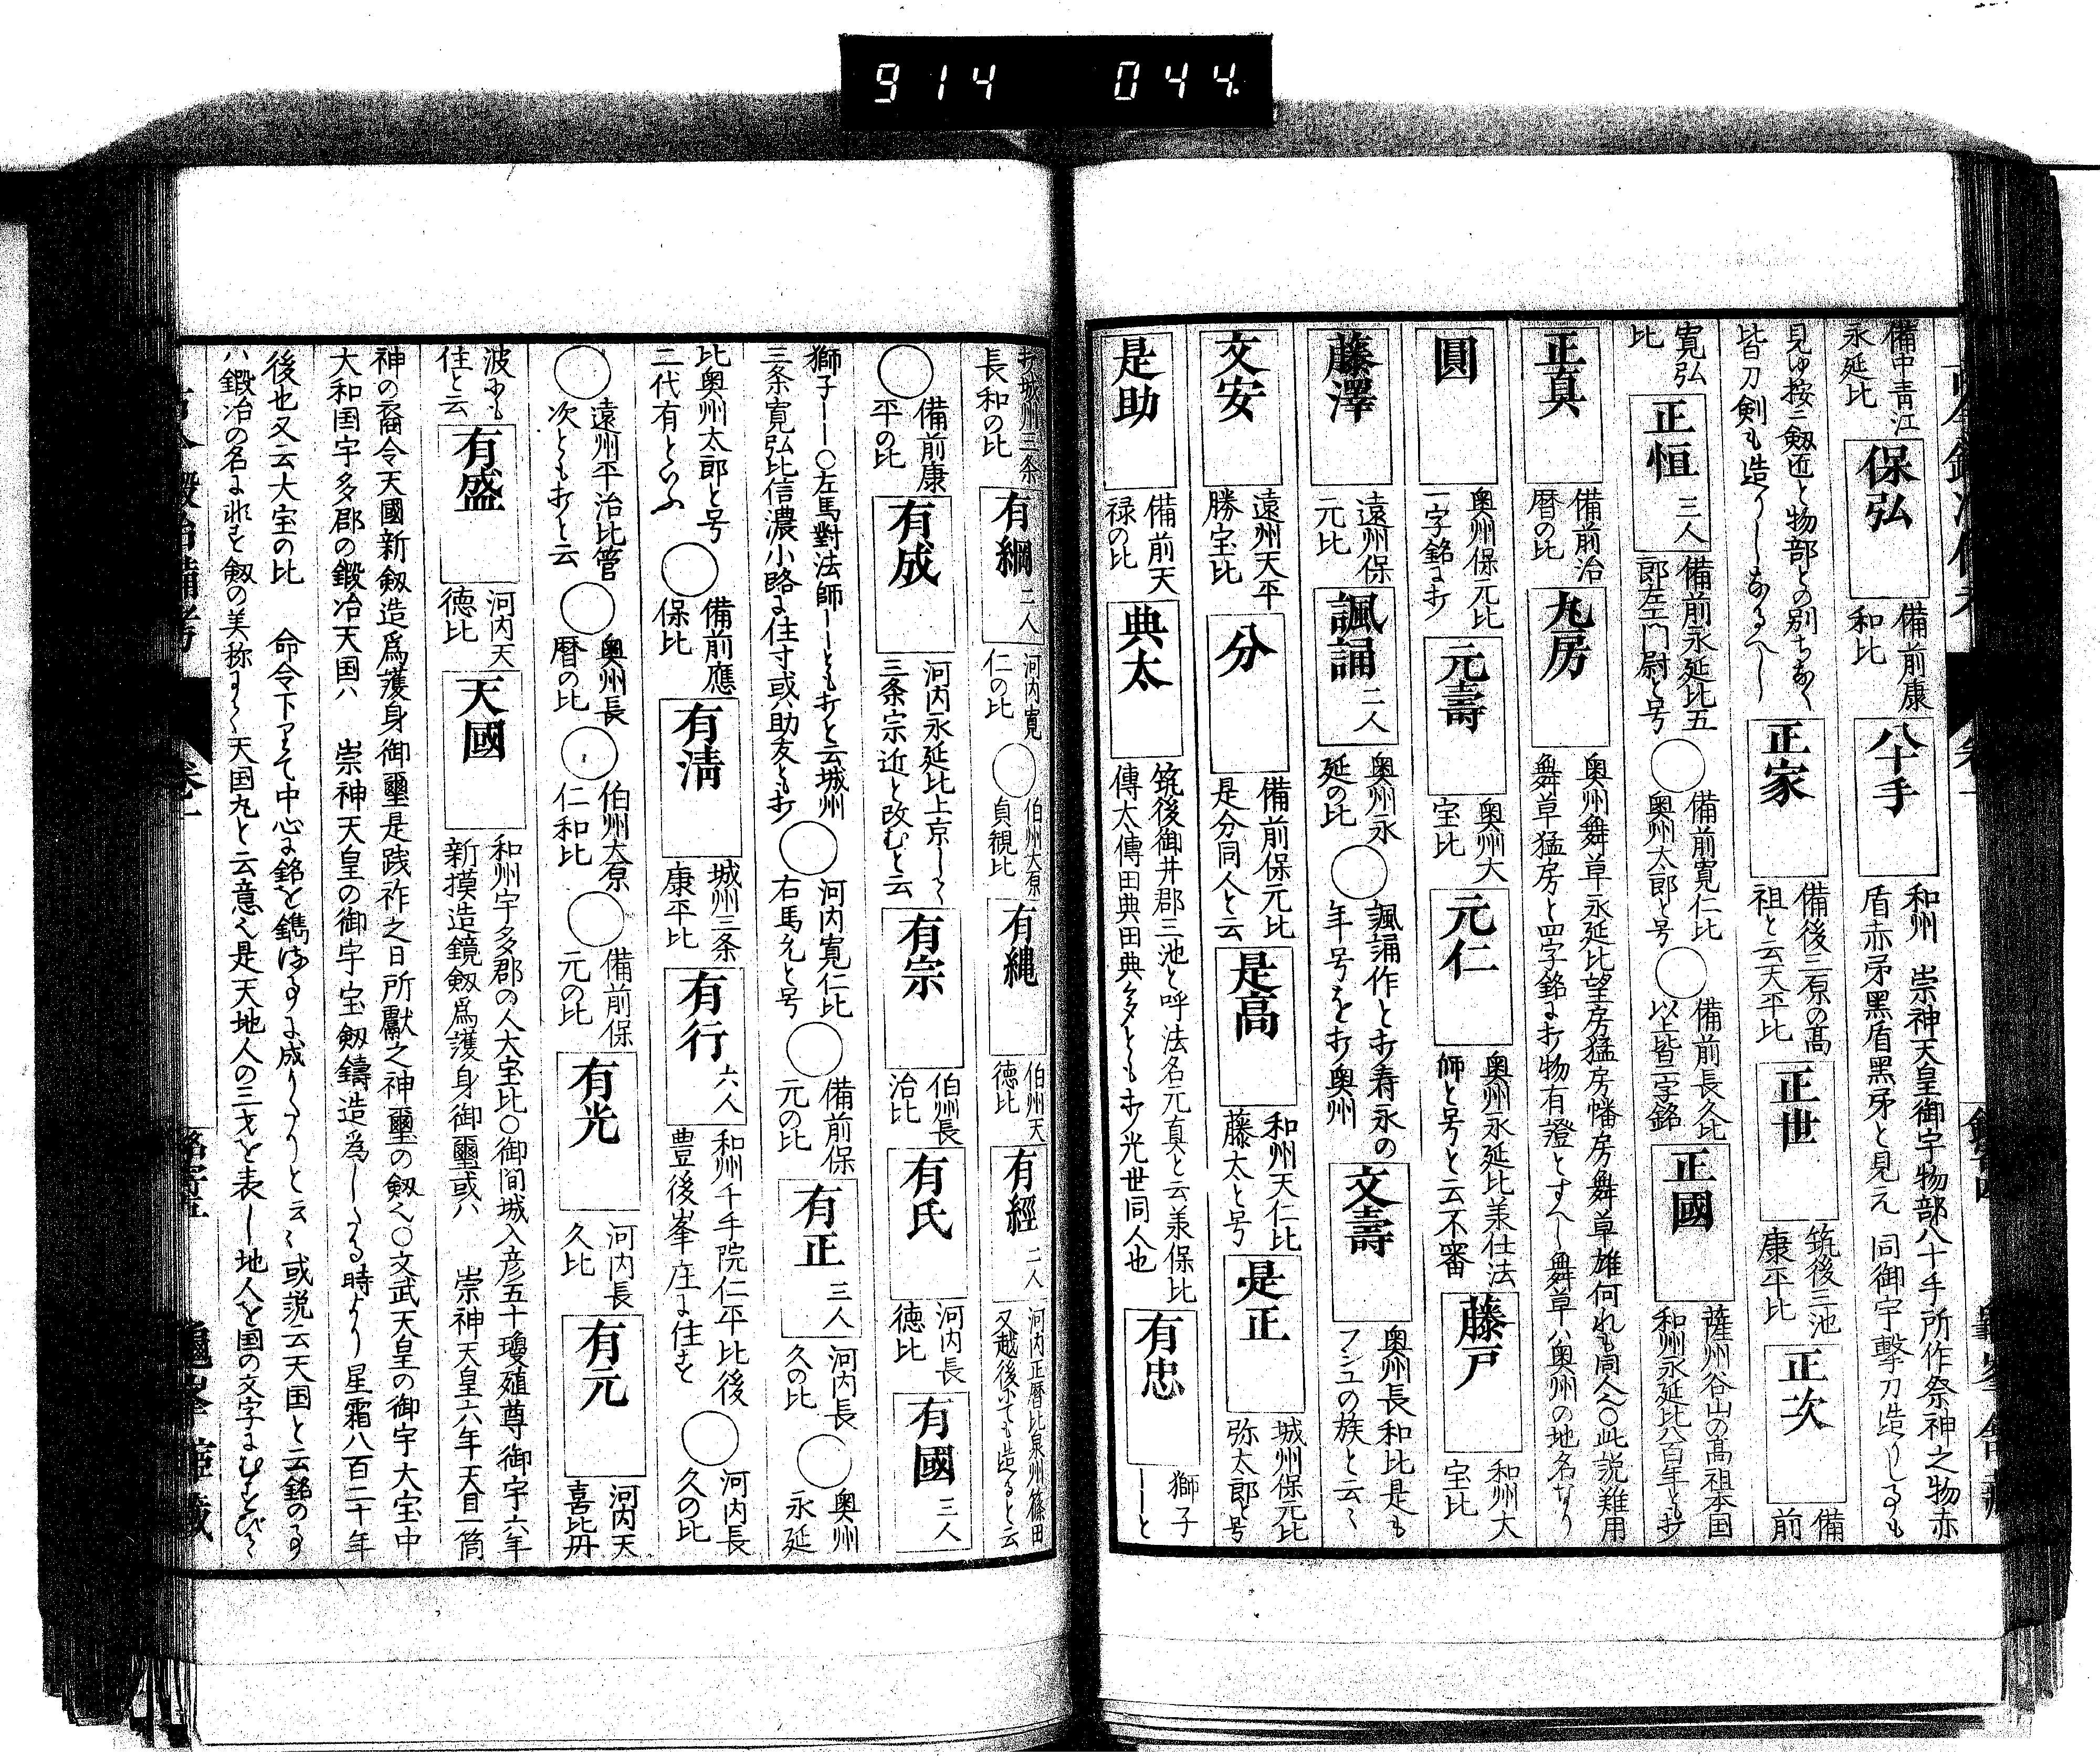 914 044.
備中青江
永延比
保弘
備前康
和比
八十手
和州 崇神天皇御宇物部八十手所作祭神之物赤
盾赤矛黑盾黑矛と見え 同御宇撃刀造りしるも
見ゆ按ニ剱匠と物部との別ちなく
皆刀剣も造りしなるへし
正家
備後三原の高
祖と云天平比
正世
筑後三池
康平比
正次
備
前
寛弘
比
正恒 三人
備前永延比五
郎左エ門尉と号
○
備前寛仁比
奥州太郎と号
○
備前長久比
以上皆二字銘
正國
薩州谷山の高祖本国
和州永延比八百年とも打
正真
備前治
暦の比
丸房
奥州舞草永延比望房猛房幡房舞草雄何れも同人〇此説難用
舞草猛房と四字銘に打物有證とすへし舞草ハ奥州の地名なり
圓
奥州保元比
一字銘に打
元壽
奥州大
宝比
元仁
奥州永延比兼仕法
師と号と云不審
藤戸
和州大
宝比
藤澤
遠州保
元比
諷誦 二人
奥州永
延の比
○
諷誦作と打寿永の
年号を打奥州
文壽
奥州長和比是も
フジユの族と云
文安
遠州天平
勝宝比
分
備前保元比
是分同人と云
是高
和州天仁比
藤太と号
是正
城州保元比
弥太郎と号
是助
備前天
禄の比
典太
筑後御井郡三池と呼法名元真と云兼保比
傳太傳田典田典多とも打光世同人也
有忠
獅子
――と
打城州三条
長和の比
有綱 二人
河内寛
仁の比
○
伯州大原
貞観比
有縄
伯州天
徳比
有經 二人
河内正暦比泉州篠田
又越後にても造ると云
○
備前康
平の比
有成
河内永延比上京し
三条宗近と改むと云
有宗
伯州長
治比
有氏
河内長
徳比
有國 三人
獅子――〇左馬對法師――とも打と云城州
三条寛弘比信濃小路に住す或ハ助友とも打
○
河内寛仁比
右馬允と号
○
備前保
元の比
有正 三人
河内長
久の比
○
奥州
永延
比奥州太郎と号
二代有といふ
○
備前應
保比
有淸
城州三条
康平比
有行 六人
和州千手院仁平比後
豊後峯庄に住す
○
河内長
久の比
○
遠州平治比管
次とも打と云
○
奥州長
暦の比
○
伯州大原
仁和比
○
備前保
元の比
有光
河内長
久比
有元
河内天
喜比丹
波にも
住と云
有盛
河内天
徳比
天國
和州宇多郡の人大宝比〇御間城入彦五十瓊殖尊御宇六年
新摸造鏡剱爲護身御璽或ハ 崇神天皇六年天目一箇
神の裔令天國新剱造爲護身御璽是践祚之日所獻之神璽の剱〇文武天皇の御宇大宝中
大和国宇多郡の鍛冶天国ハ 崇神天皇の御宇宝剱鑄造爲しる時より星霜八百二十年
後也又云大宝の比 命令下りて中心に銘を鐫するに成りたりと云或説云天国と云銘のる
ハ鍛冶の名に非す剱の美称にて天国丸と云意是天地人の三才を表し地人を国の文字にむすび